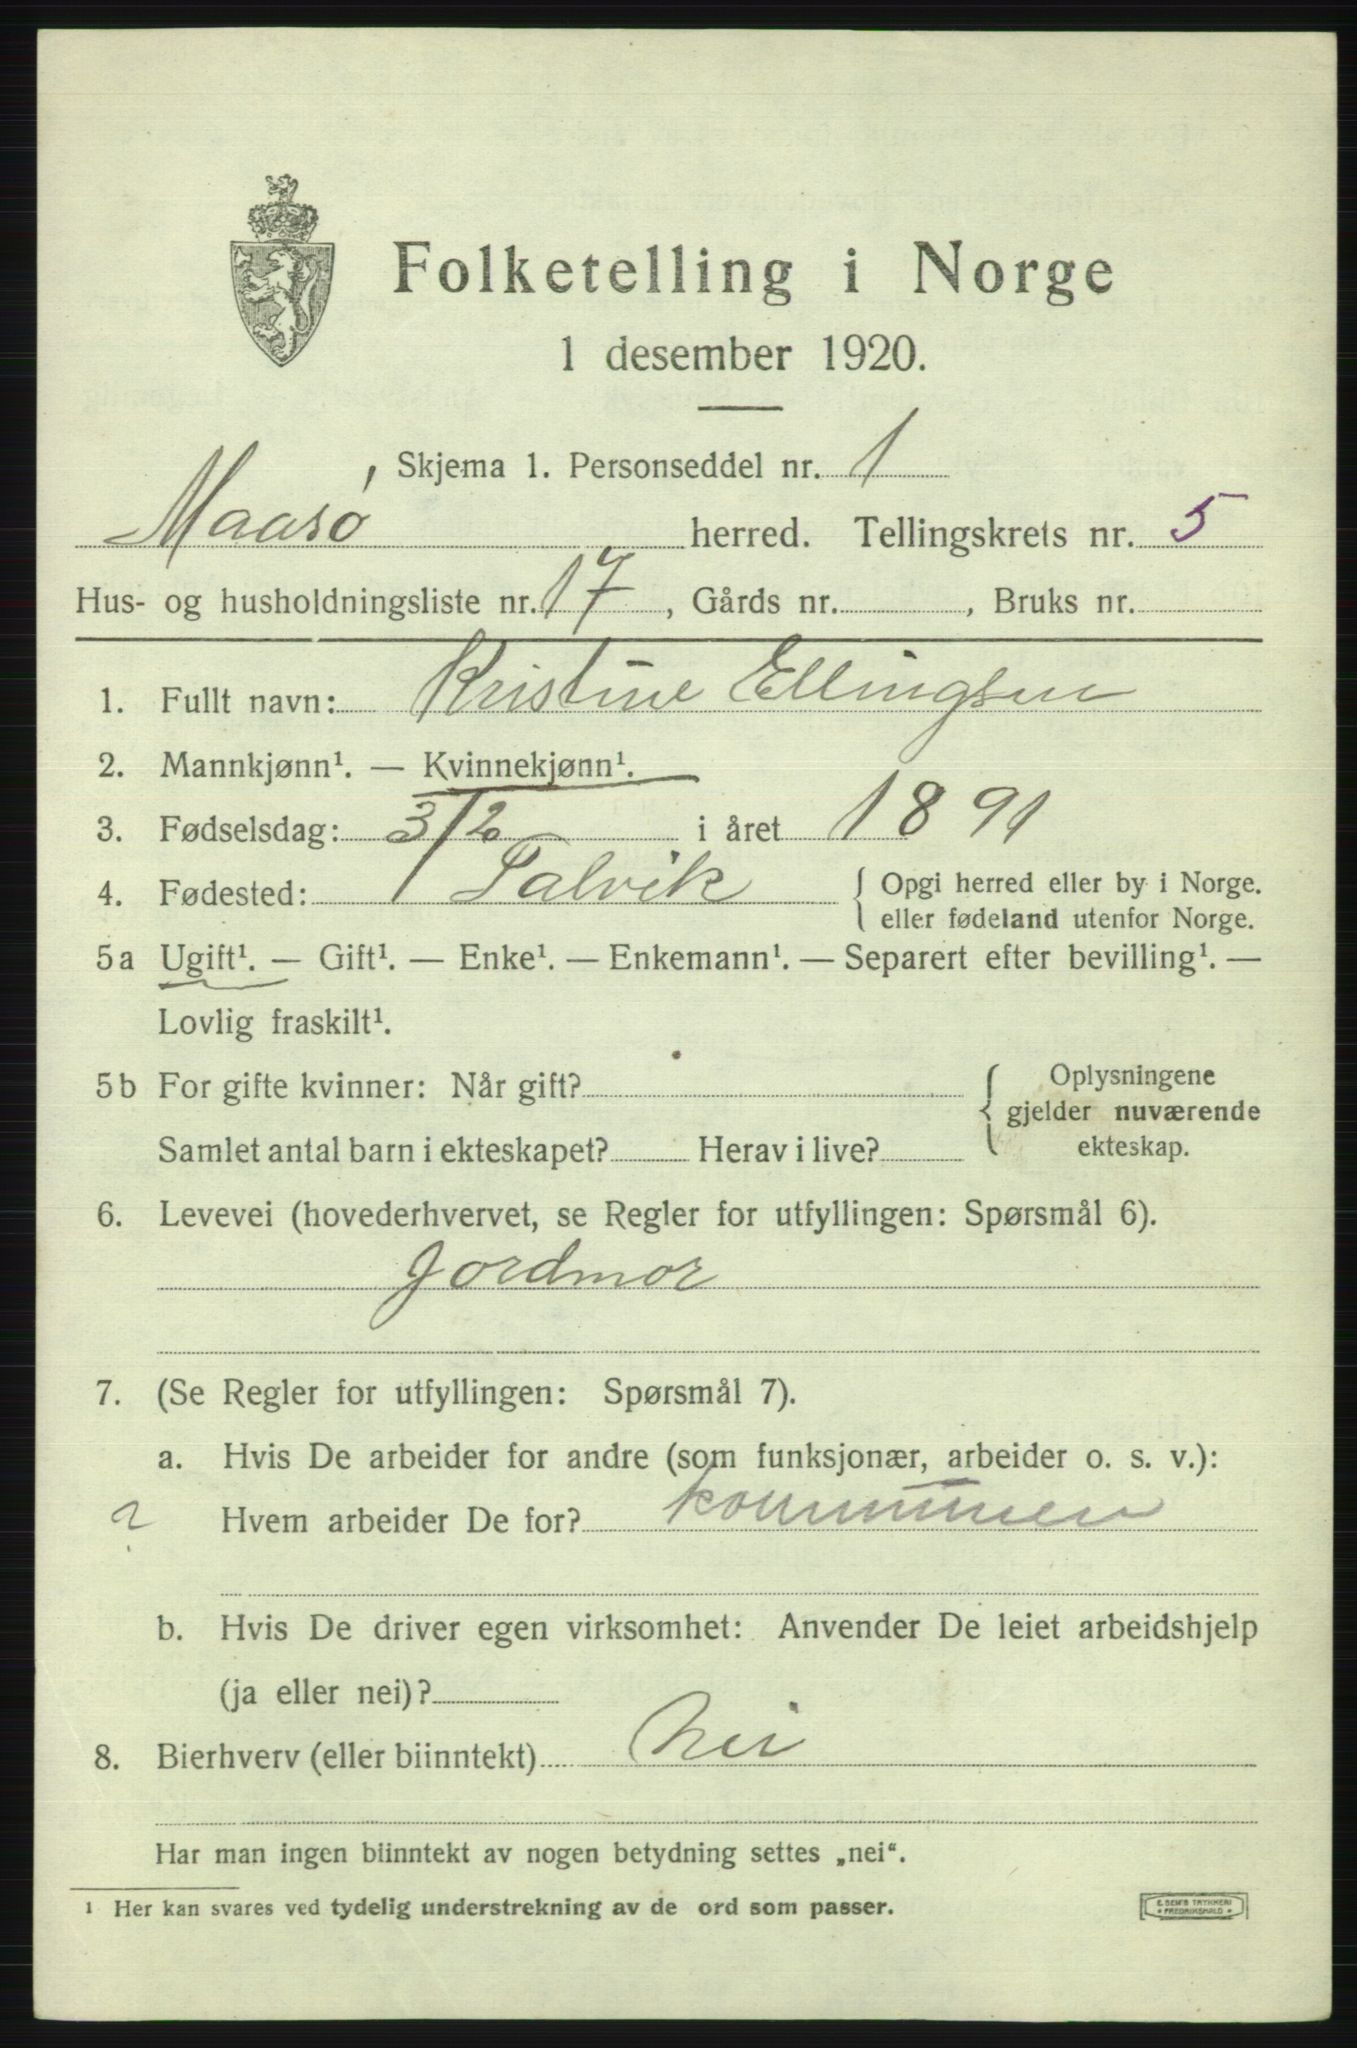 Folketelling i Norge
1 desember 1920.
Skjema 1. Personseddel nr. 1
Maasø herred. Tellingskrets nr. 5
Hus- og husholdningsliste nr. 17, Gårds nr. , Bruks nr.
1. Fullt navn: Kristine Ellingsen
2. Mannkjønn¹. — Kvinnekjønn¹.
3. Fødselsdag: 3/2 i året 1891
4. Fødested: Talvik { Opgi herred eller by i Norge.
eller fødeland utenfor Norge.
5a Ugift¹. — Gift¹. — Enke¹. — Enkemann¹. — Separert efter bevilling¹. —
Lovlig fraskilt¹.
5b For gifte kvinner: Når gift? { Oplysningene
gjelder nuværende
Samlet antal barn i ekteskapet? Herav i live? ekteskap.
6. Levevei (hovederhvervet, se Regler for utfyllingen: Spørsmål 6).
Jordmor
7. (Se Regler for utfyllingen: Spørsmål 7).
a. Hvis De arbeider for andre (som funksjonær, arbeider o. s. v.):
? Hvem arbeider De for? kommunen
b. Hvis De driver egen virksomhet: Anvender De leiet arbeidshjelp
(ja eller nei)?
8. Bierhverv (eller biinntekt) Nei
Har man ingen biinntekt av nogen betydning settes „nei“.
¹ Her kan svares ved tydelig understrekning av de ord som passer.
E. SEM'S TRYKKERI
• FREDRIKSHALD •